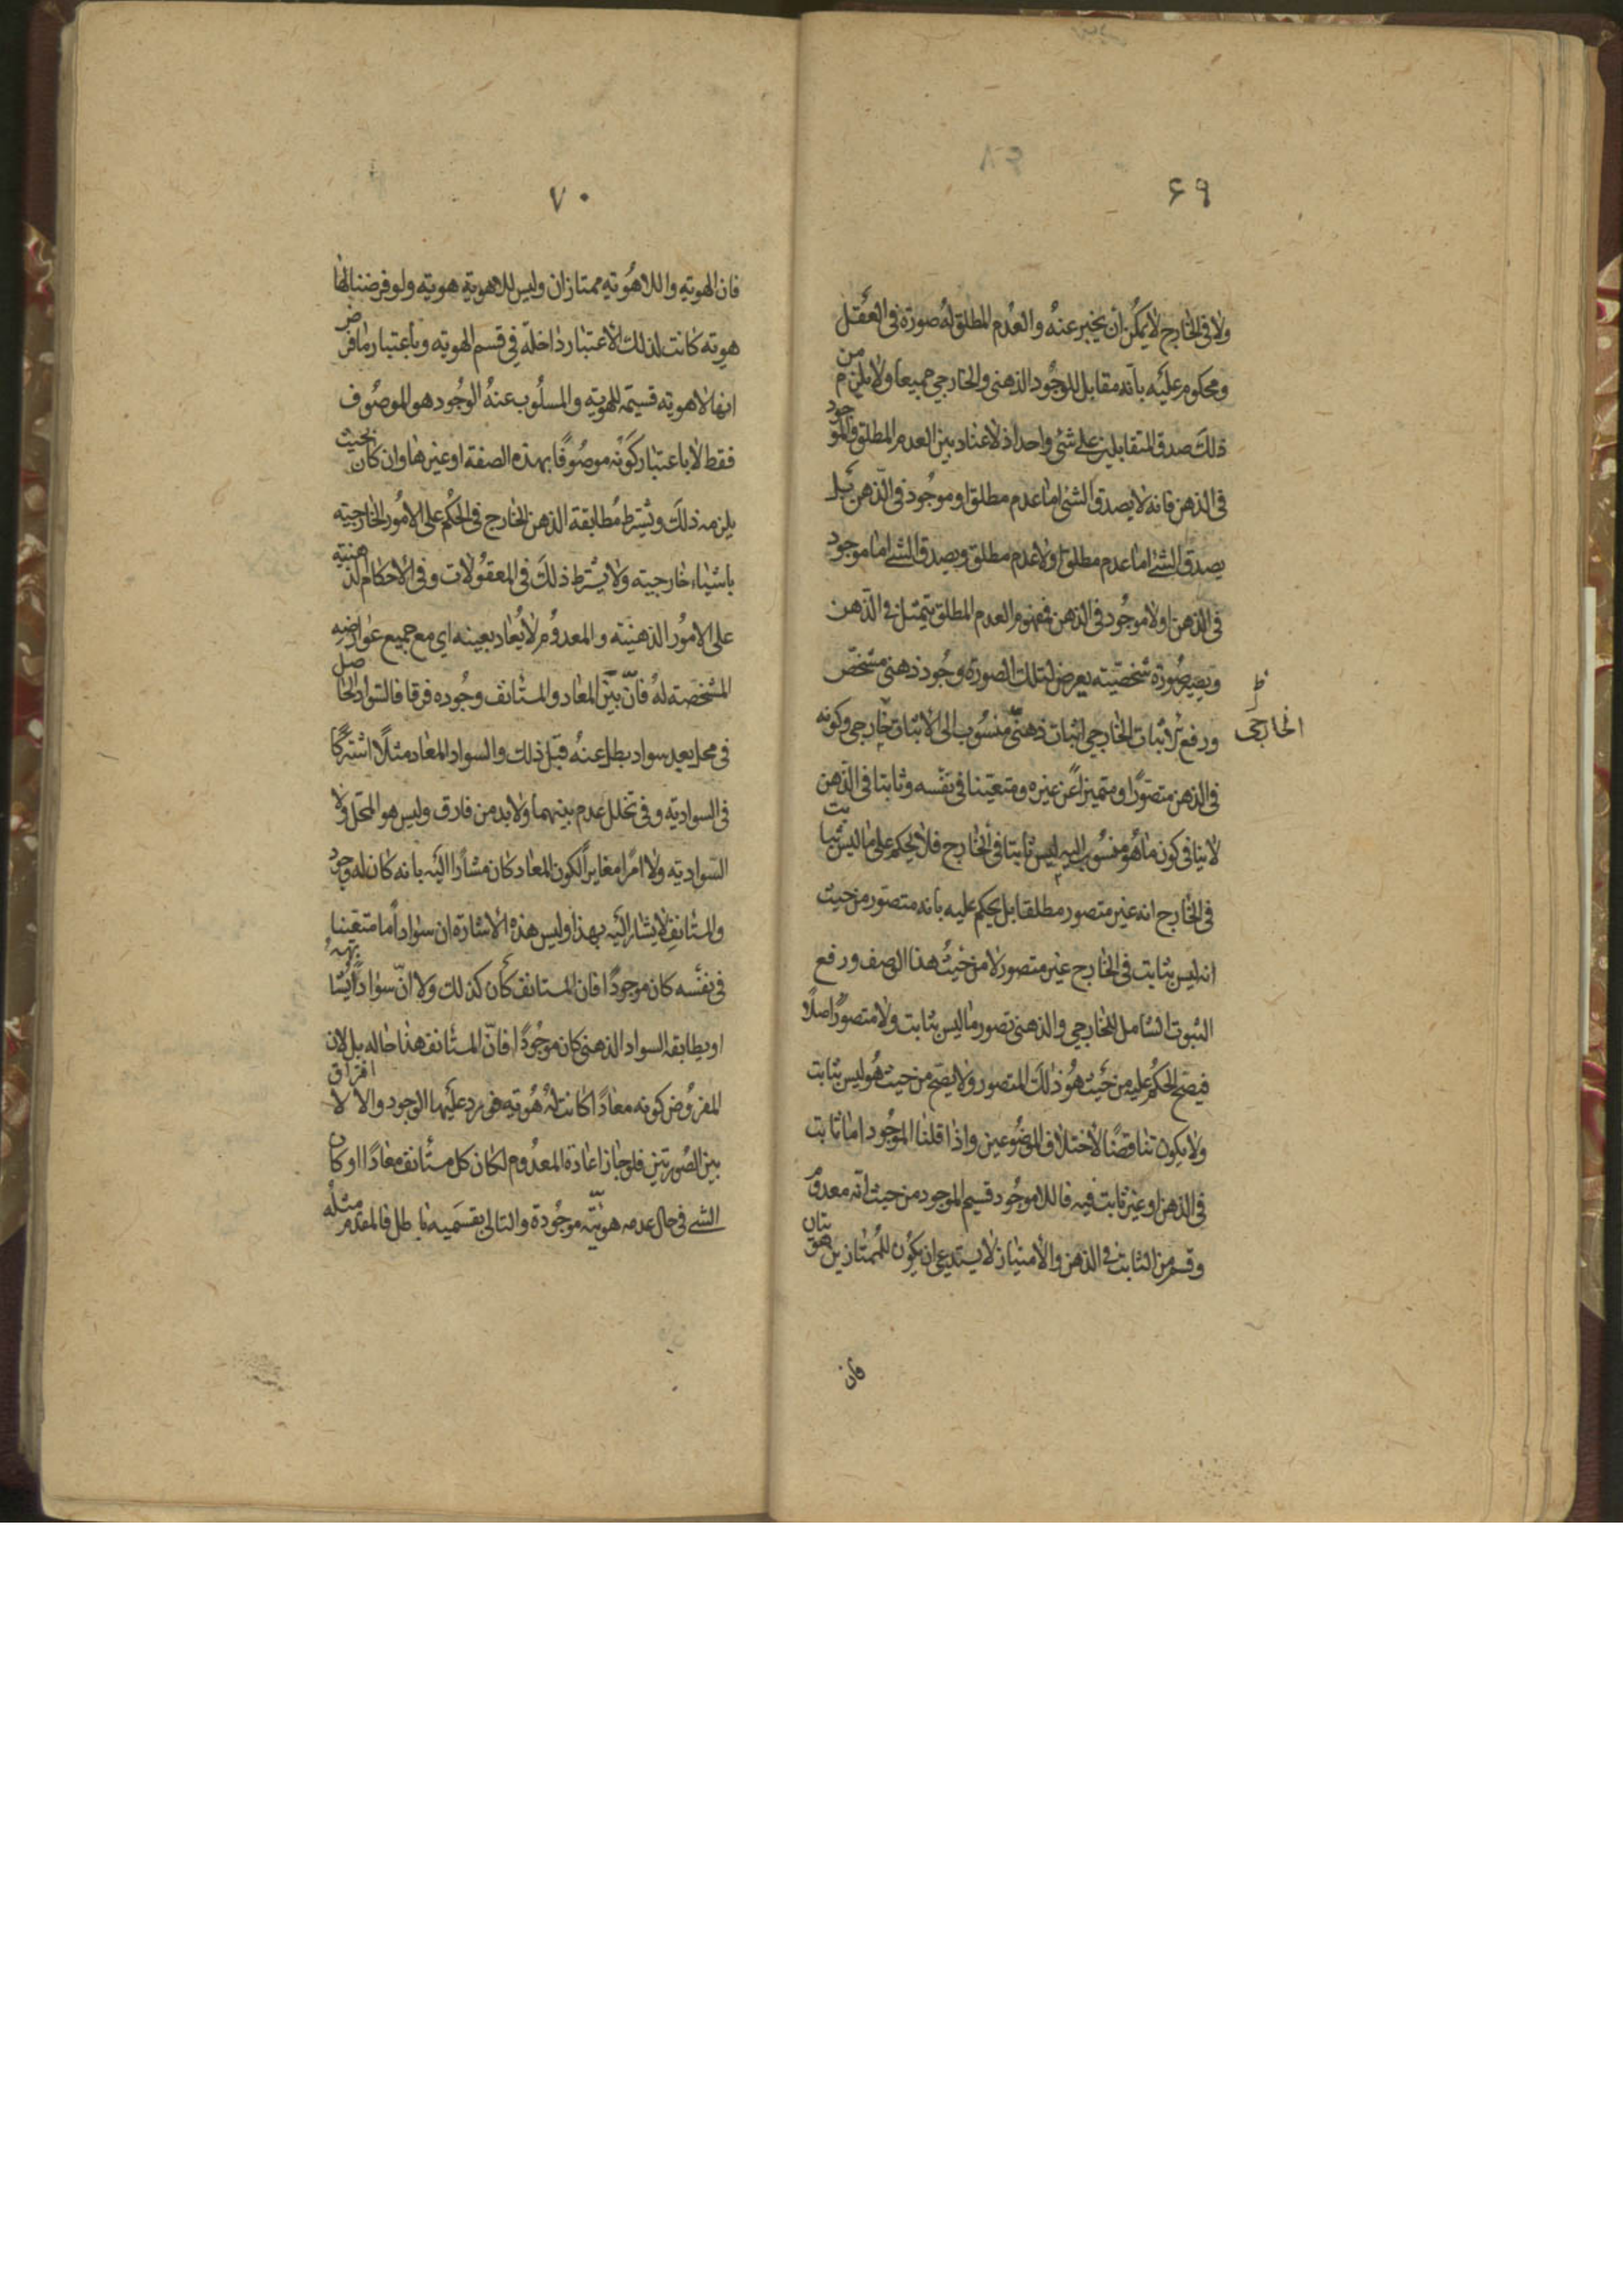 ۶۹
ولا فى الخارج لا يمكن ان يخبر عنه والعدم المطلق له صورة فى العقل
ومحكوم عليه بانه مقابل للوجود الذهنى والخارجي جميعا ولا يلزم من
ذلك صدق المتقابلين على شئ واحد اذ لا عناد بين العدم المطلق والموجود
فى الذهن فانه لا يصدق الشئ اما عدم مطلق او موجود فى الذهن بل
يصدق الشئ اما عدم مطلق او لا عدم مطلق ويصدق الشئ اما موجود
فى الذهن او لا موجود فى الذهن فمفهوم العدم المطلق يتمثل فى الذهن
ويصير صورة شخصيته يعرض لتلك الصورة وجود ذهنى مشخص
ورفع الاثبات الخارجي اثبات ذهنى منسوب الى لا اثبات خارجي وكونه
ظ
الخارجى
فى الذهن متصورا ومتميزا عن غيره ومتعينا فى نفسه وثابتا فى الذهن
لا ينافى كون ما هو منسوب اليه ليس ثابتا فى الخارج فلا يحكم على ما ليس بثابت
فى الخارج انه غير متصور مطلقا بل يحكم عليه بانه متصور من حيث
انه ليس بثابت فى الخارج غير متصور لا من حيث هذا الوصف ورفع
الثبوت الشامل للخارجي والذهنى تصور ما ليس بثابت ولا متصورا اصلا
فيصح الحكم عليه من حيث هو ذلك المتصور ولا يصح من حيث هو ليس بثابت
ولا يكون تناقضا لاختلاف الموضوعين واذا قلنا الموجود اما ثابت
فى الذهن او غير ثابت فيه فاللاموجود قسيم الموجود من حيث انه معدوم
وقسم من الثابت فى الذهن والامتياز لا يستدعى ان يكون للممتازين هويتان
فان
۷۰
فان الهويه واللاهويه ممتازان وليس للاهويه هويه ولو فرضنا لها
هويه كانت لذلك الاعتبار داخلة فى قسم الهويه وباعتبار ما فرض
انها لا هويه قسيمه للهويه والمسلوب عنه الوجود هو الموصوف
فقط لا باعتبار كونه موصوفا بهذه الصفة او غيرها وان كان بحيث
يلزمه ذلك ويشترط مطابقة الذهن الخارج فى الحكم على الامور الخارجيه
باشياء خارجيه ولا يشترط ذلك فى المعقولات وفى الاحكام الذهنيه
على الامور الذهنيه والمعدوم لا يعاد بعينه اى مع جميع عوارضه
المشخصه له فان بين المعاد والمستانف وجوده فرقا فالسواد الحاصل
فى محل بعد سواد بطل عنه قبل ذلك والسواد المعاد مثلا اشتركا
فى السواديه وفى تخلل عدم بينهما ولا بد من فارق وليس هو المحل ولا
السواديه ولا امرا مغايرا لكون المعاد كان مشارا اليه بانه كان له وجود
والمستانف لا يشار اليه بهذا وليس هذه الاشارة ان سوادا ما متعينا
فى نفسه كان موجودا فان المستانف كان كذلك ولا ان سوادا يشابهه
او يطابقه السواد الذهنى كان موجودا فان المستانف هذا حاله بل لان
المفروض كونه معادا كانت له هويه فى مرد عليها الوجود والا لا افتراق
بين الصورتين فلو جاز اعادة المعدوم لكان كل مستانف معادا او كان
الشئ فى حال عدمه هويته موجودة والتالى بقسميه باطل فالمقدم مثله